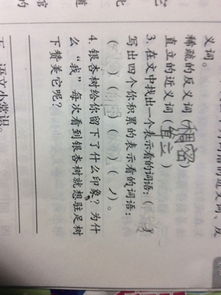 义词。
稀疏的反义词(稠密)
直立的近义词(立)
3. 在文中找出一个表示看的词语:( )
写出四个你积累的表示看的词语:
( )( )( )( )。
4. 银杏树给你留下了什么印象?为什
么“我”每次看到银杏树就想驻足树
下赞美它呢?
语文小常识。